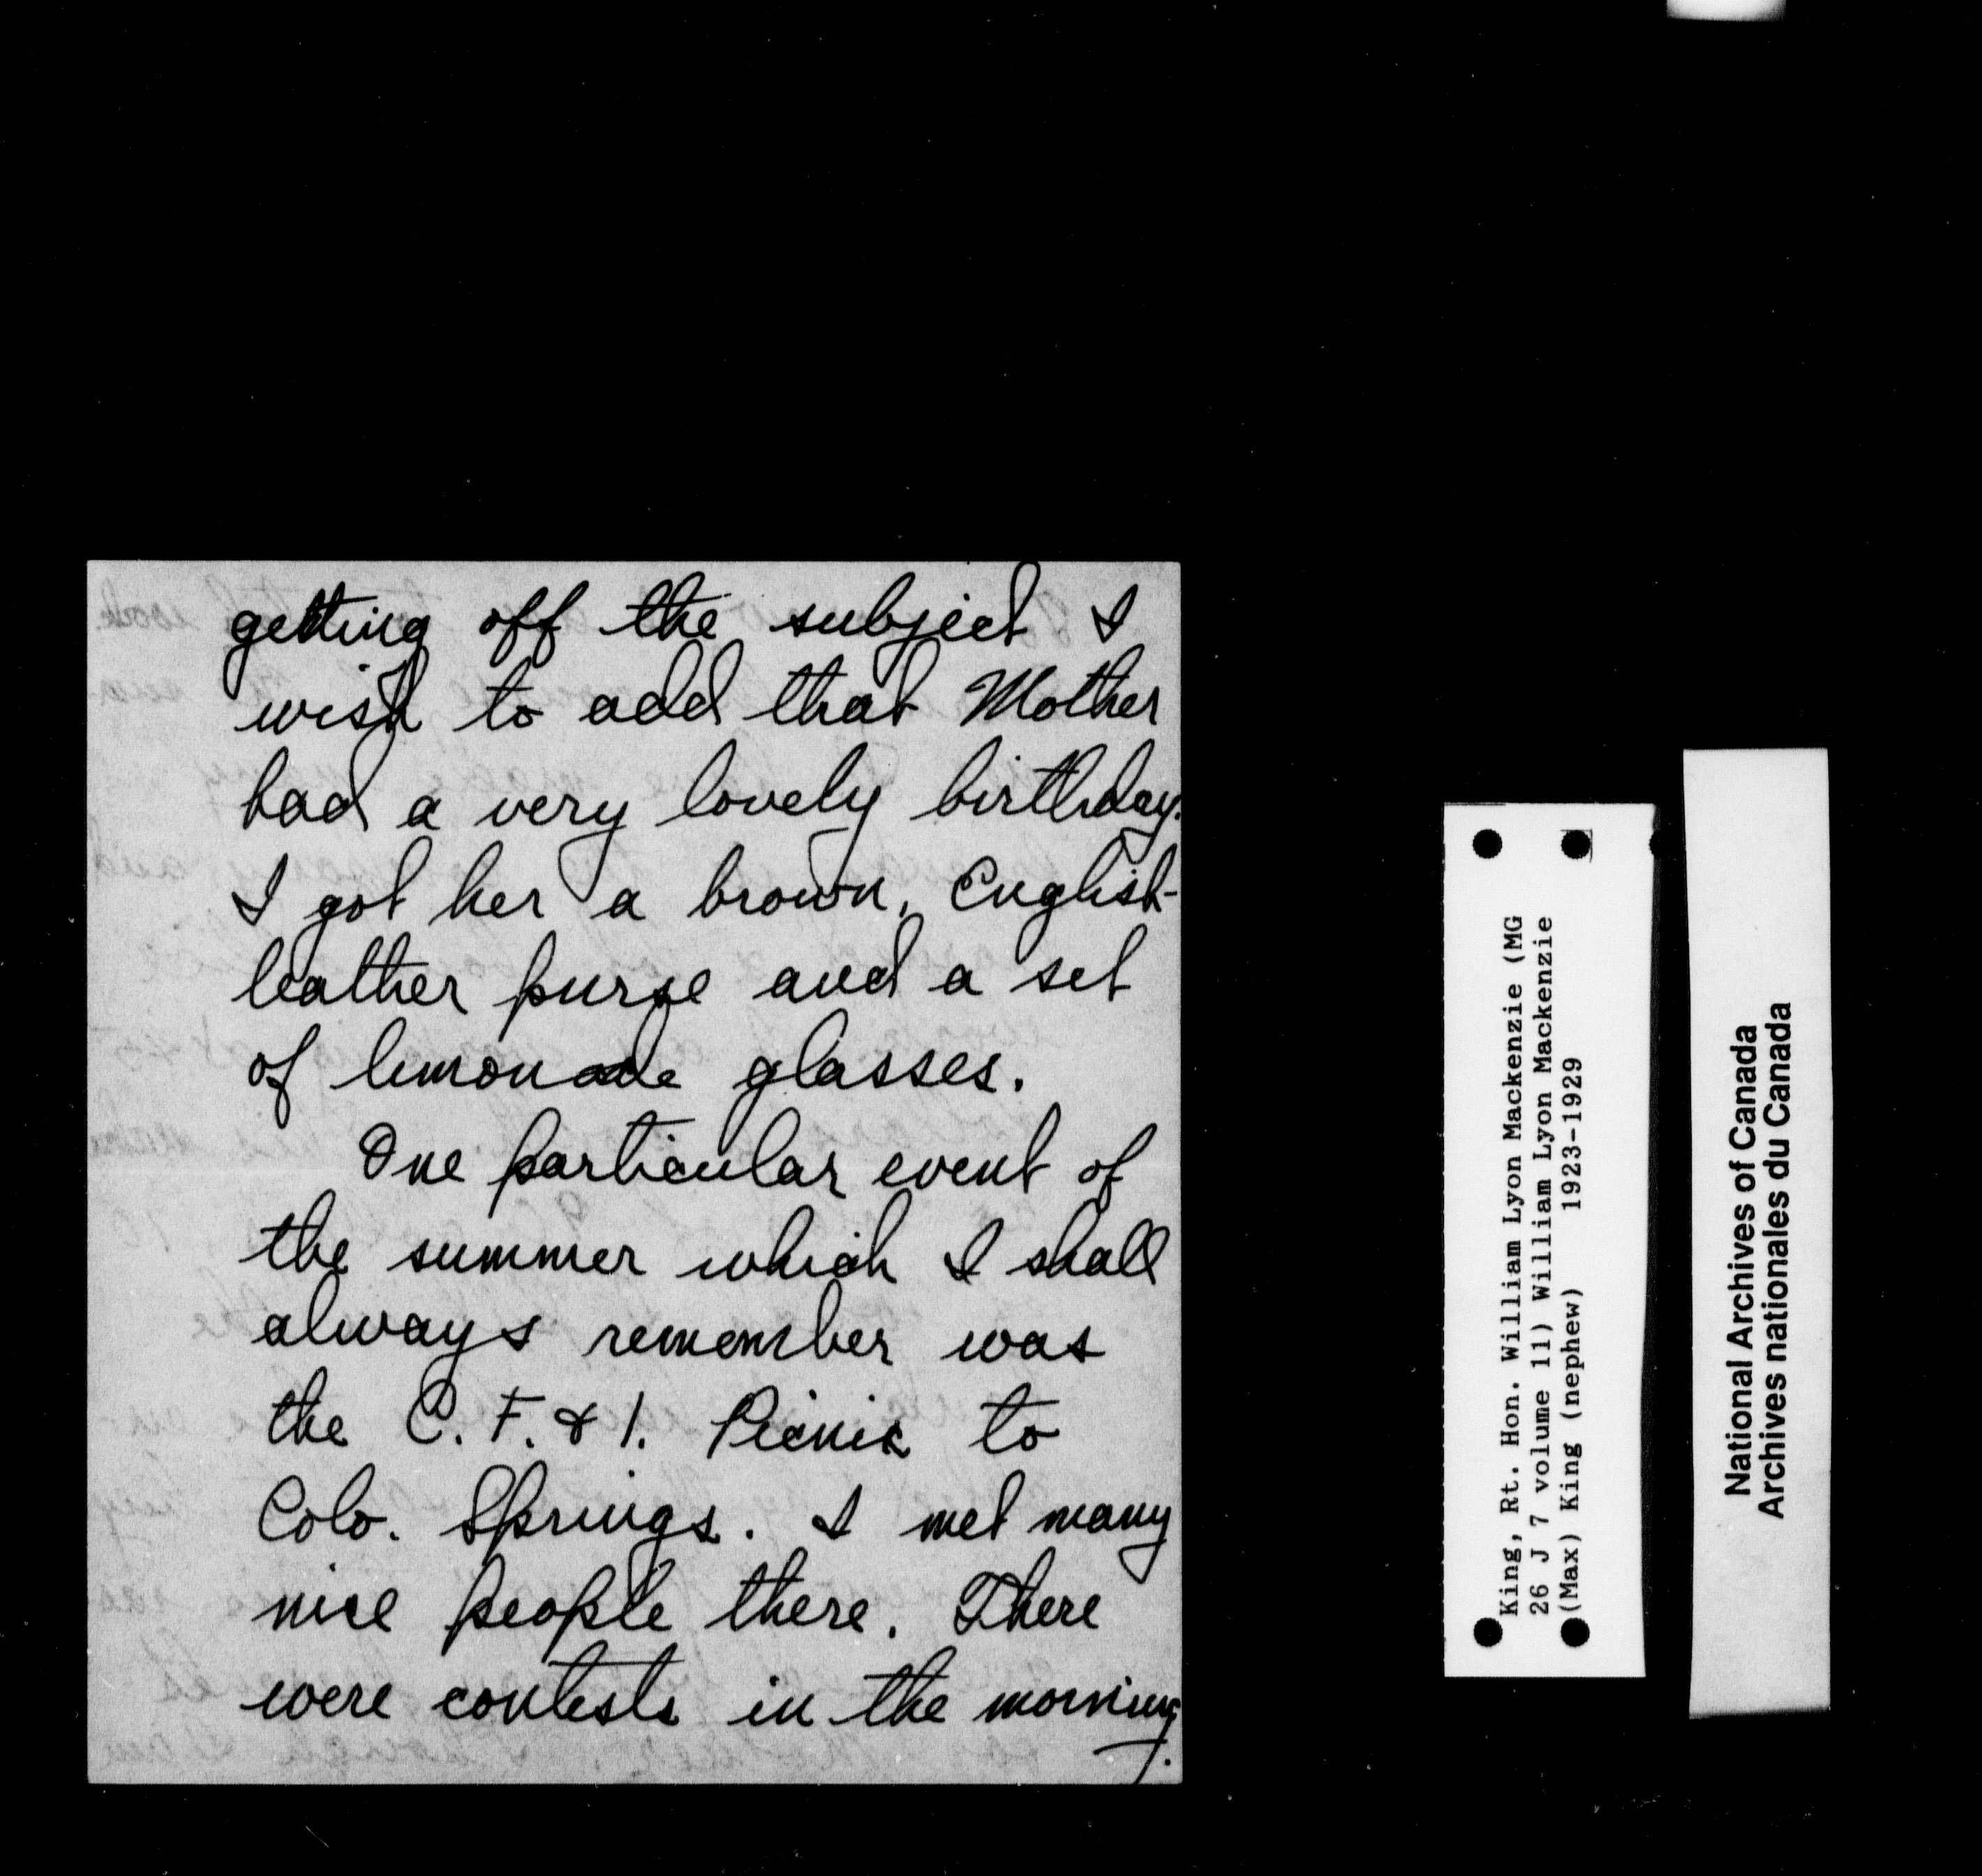 getting off the subject I
wish to add that Mother
had a very lovely birthday.
I got her a brown, English-
leather purse and a set
of lemonade glasses.
One particular event of
the summer which I shall
always remember was
the C. F. & I. Picnic to
Colo. Springs. I met many
nice people there. There
were contests in the morning.
King, Rt. Hon. William Lyon Mackenzie (MG
26 J 7 volume 11) William Lyon Mackenzie
(Max) King (nephew) 1923-1929
National Archives of Canada
Archives nationales du Canada